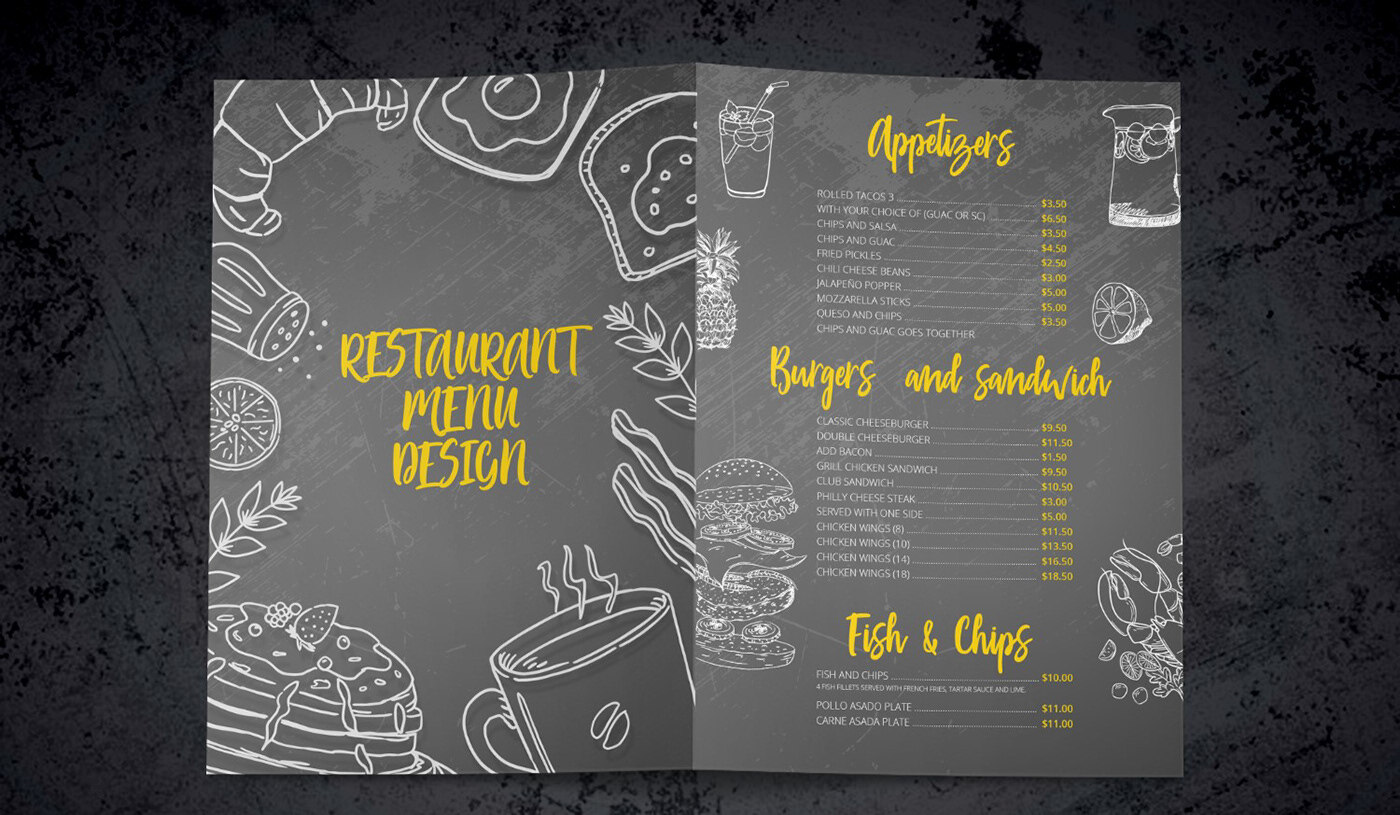 RESTAURANT
MENU
DESIGN
Appetizers
ROLLED TACOS 3 $3.50
WITH YOUR CHOICE OF (GUAC OR SC) $6.50
CHIPS AND SALSA $3.50
CHIPS AND GUAC $4.50
FRIED PICKLES $2.50
CHILI CHEESE BEANS $3.00
JALAPEÑO POPPER $5.00
MOZZARELLA STICKS $5.00
QUESO AND CHIPS $3.50
CHIPS AND GUAC GOES TOGETHER
Burgers and sandwich
CLASSIC CHEESEBURGER $9.50
DOUBLE CHEESEBURGER $11.50
ADD BACON $1.50
GRILL CHICKEN SANDWICH $9.50
CLUB SANDWICH $10.50
PHILLY CHEESE STEAK $3.00
SERVED WITH ONE SIDE $5.00
CHICKEN WINGS (8) $11.50
CHICKEN WINGS (10) $13.50
CHICKEN WINGS (14) $16.50
CHICKEN WINGS (18) $18.50
Fish & Chips
FISH AND CHIPS $10.00
4 FISH FILLETS SERVED WITH FRENCH FRIES, TARTAR SAUCE AND LIME.
POLLO ASADO PLATE $11.00
CARNE ASADA PLATE $11.00